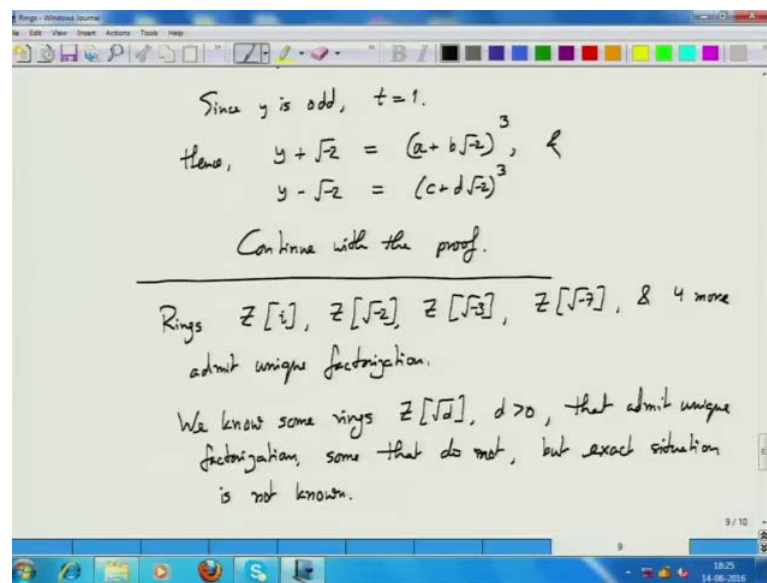 Rings - Windows Journal
File Edit View Insert Actions Tools Help
Since y is odd, t = 1.
Hence, y + √-2 = (a + b√-2)³, &
y - √-2 = (c + d√-2)³
Continue with the proof.
Rings Z[i], Z[√-2], Z[√-3], Z[√-7], & 4 more
admit unique factorization.
We know some rings Z[√d], d>0, that admit unique
factorization, some that do not, but exact situation
is not known.
9 / 10
9
18:25
14-06-2016